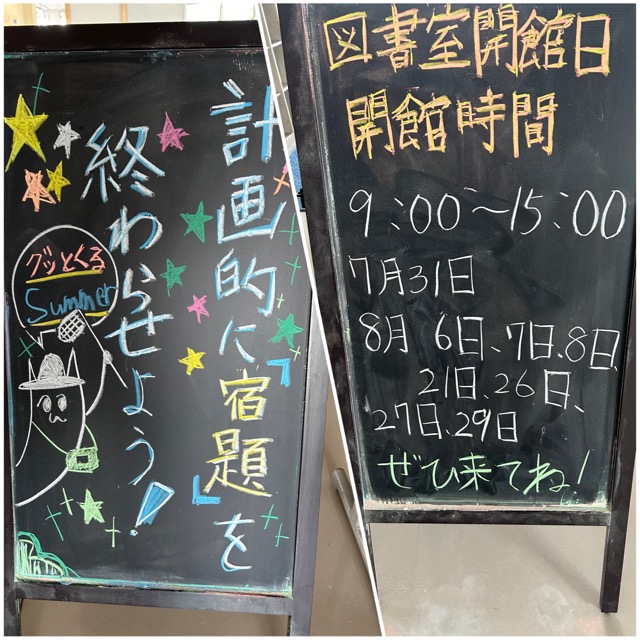 計画的に「宿題」を
終わらせよう!
グッとくる
Summer
図書室開館日
開館時間
9:00~15:00
7月31日
8月 6日、7日、8日、
21日、26日、
27日、29日
ぜひ来てね!